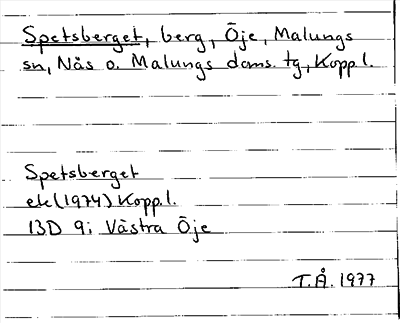 Spetsberget, berg, Öje, Malungs
sn, Nås o. Malungs doms. tg, Kopp.l.
Spetsberget
ek (1974) Kopp.l.
13D 9i Västra Öje
T.Å. 1977